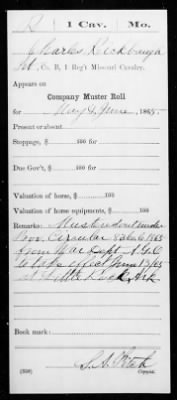 R | 1 Cav. | Mo.
Charles Rickbaugh
Pvt., Co. B, 1 Reg't Missouri Cavalry.
Appears on
Company Muster Roll
for May & June, 1865.
Present or absent
Stoppage, $ 100 for
Due Gov't, $ 100 for
Valuation of horse, $ 100
Valuation of horse equipments, $ 100
Remarks: Mustered out under
Circular
from War Dept A.G.O.
to take effect June 13/65
at Little Rock Ark
Book mark:
(358) Copyist.